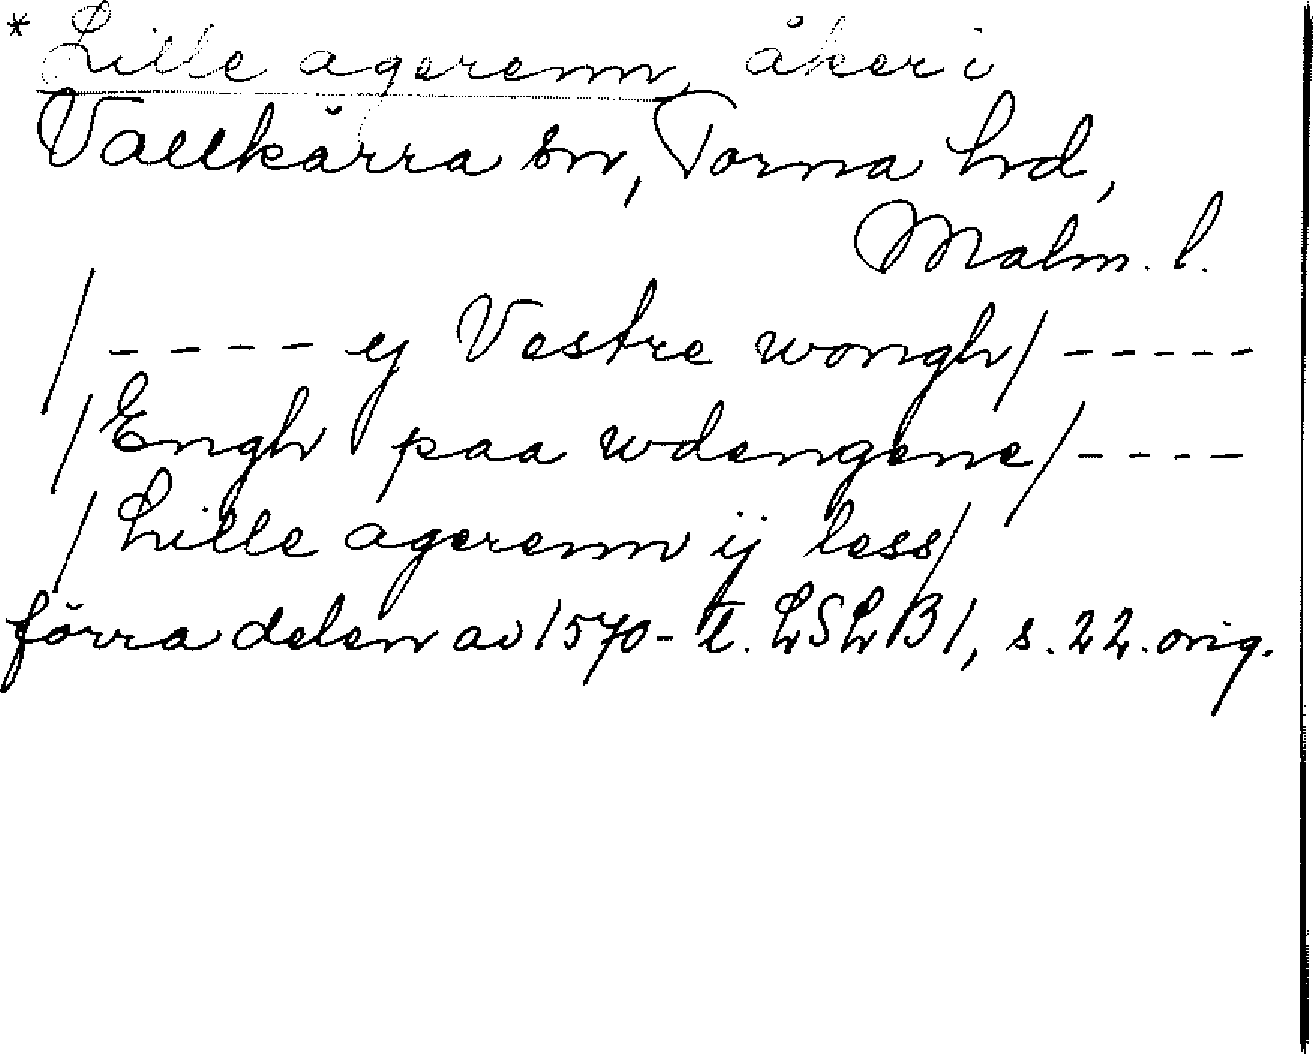 * Lille agerenn, åker i
Vallkärra sn, Torna hd,
Malm. l.
/ - - - - ej Vestre wongh / - - - - -
/ Engh paa wdengene / - - - -
/ Lille agerenn ij less /
förra delen av 1570-t. LSLB 1, s. 22. orig.